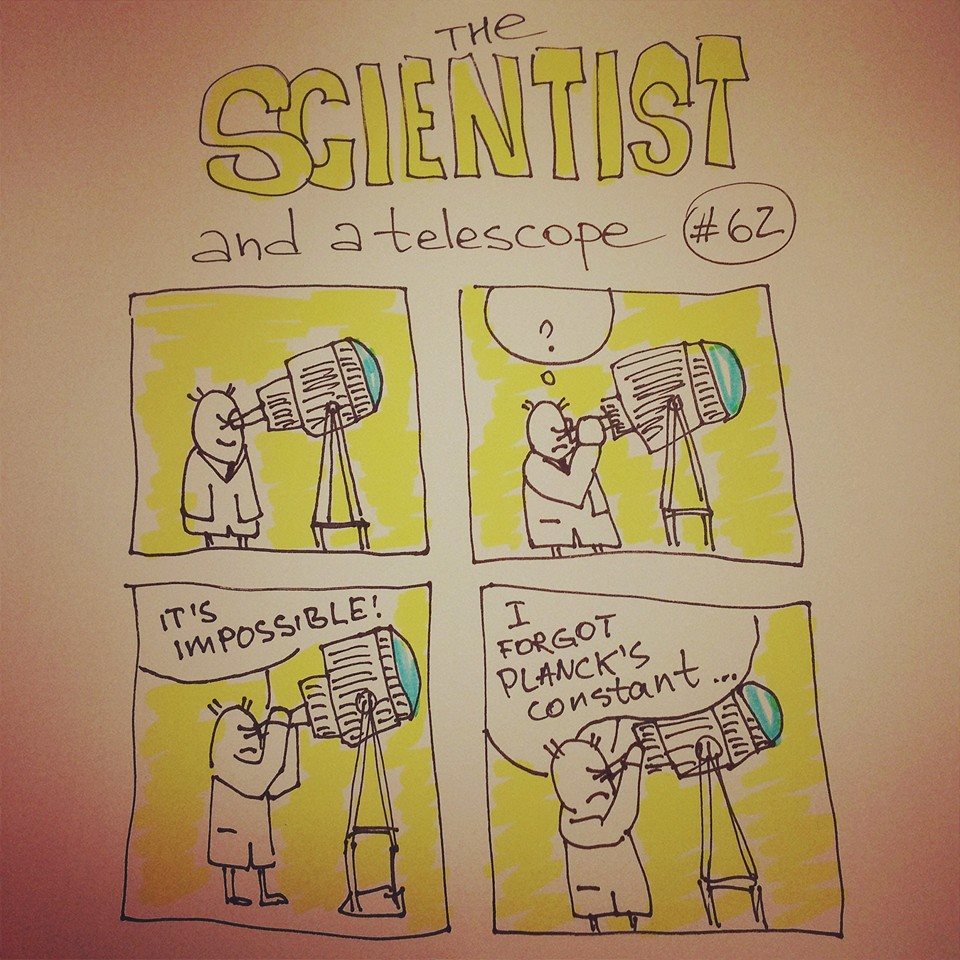 THE
SCIENTIST
and a telescope #62
?
IT'S
IMPOSSIBLE!
I
FORGOT
PLANCK'S
constant...